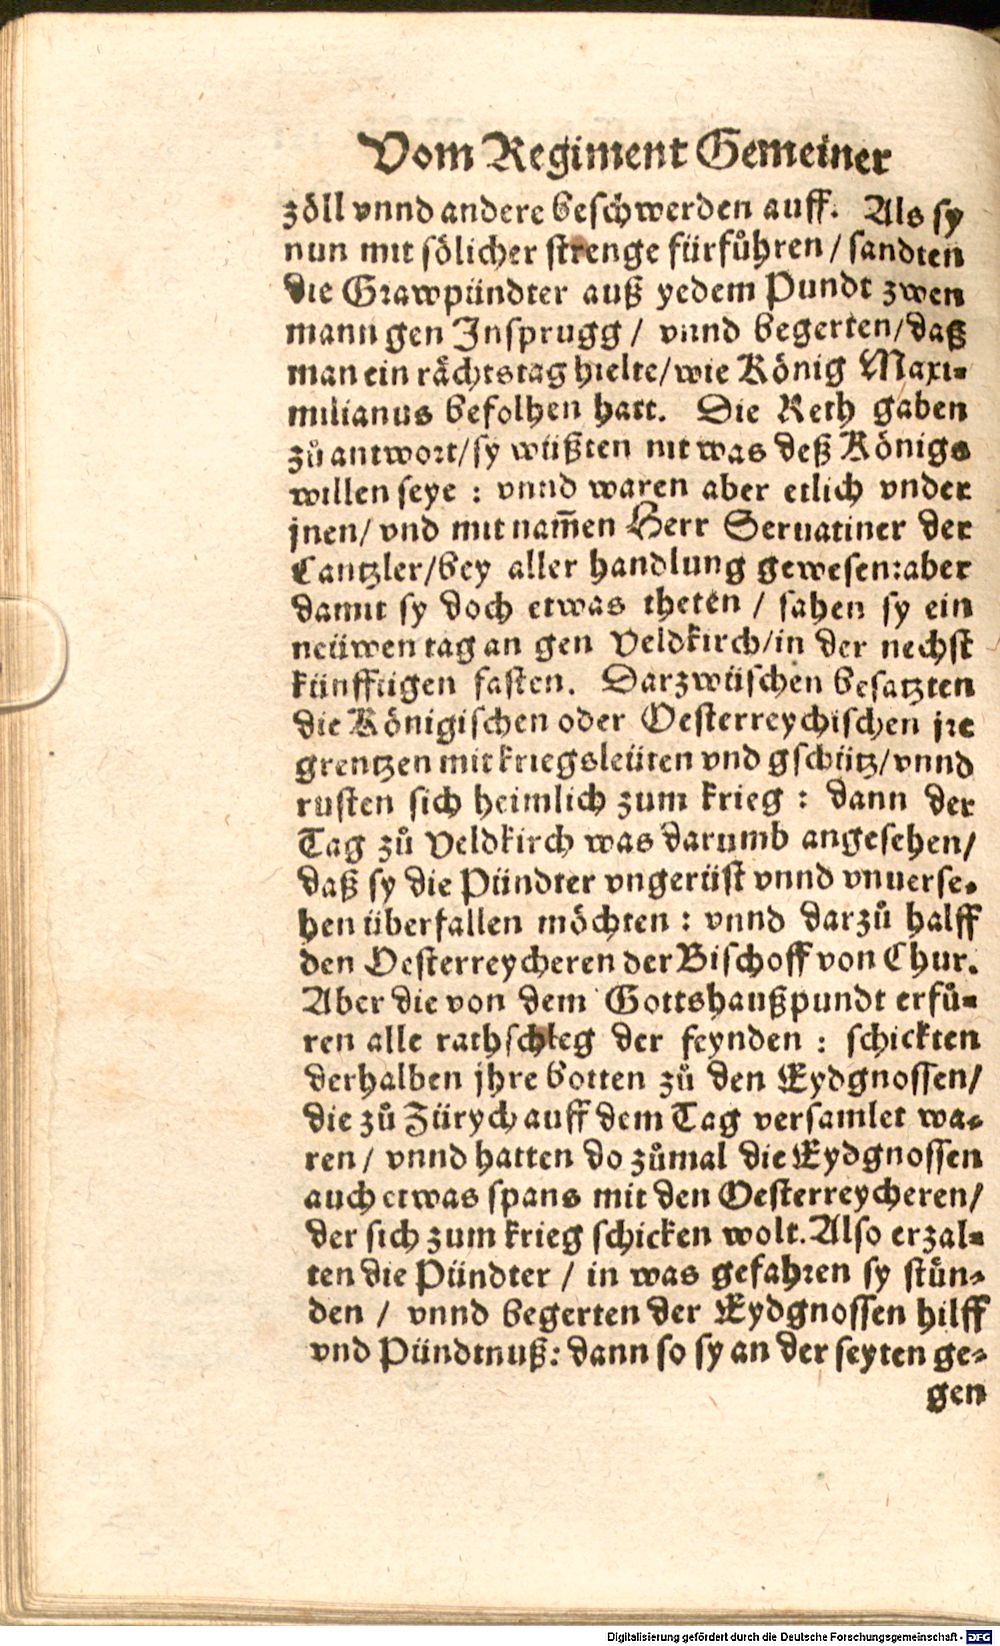 Vom Regiment Gemeiner
zöll vnnd andere beschwerden auff. Als sy
nun mit sölicher strenge fürfůhren / sandten
die Grawpündter auß yedem Pundt zwen
mann gen Jnsprugg / vnnd begerten / daß
man ein rächtstag hielte / wie König Maxi-
milianus befolhen hatt. Die Reth gaben
zů antwort / sy wüßten nit was deß Königs
willen seye : vnnd waren aber etlich vnder
jnen / vnd mit nam̃en Herr Seruatiner der
Cantzler / bey aller handlung gewesen: aber
damit sy doch etwas theten / sahen sy ein
neüwen tag an gen Veldkirch / in der nechst
künfftigen fasten. Darzwüschen besatzten
die Königischen oder Oesterreychischen jre
grentzen mit kriegsleüten vnd gschütz / vnnd
rusten sich heimlich zum krieg : dann der
Tag zů Veldkirch was darumb angesehen /
daß sy die Pündter vngerüst vnnd vnuerse-
hen überfallen möchten : vnnd darzů halff
den Oesterreycheren der Bischoff von Chur.
Aber die von dem Gottshaußpundt erfů-
ren alle rathschleg der feynden : schickten
derhalben jhre botten zů den Eydgnossen /
die zů Zürych auff dem Tag versamlet wa-
ren / vnnd hatten do zůmal die Eydgnossen
auch etwas spans mit den Oesterreycheren /
der sich zum krieg schicken wolt. Also erzal-
ten die Pündter / in was gefahren sy stün-
den / vnnd begerten der Eydgnossen hilff
vnd Pündtnuß: dann so sy an der seyten ge-
gen
Digitalisierung gefördert durch die Deutsche Forschungsgemeinschaft - DFG